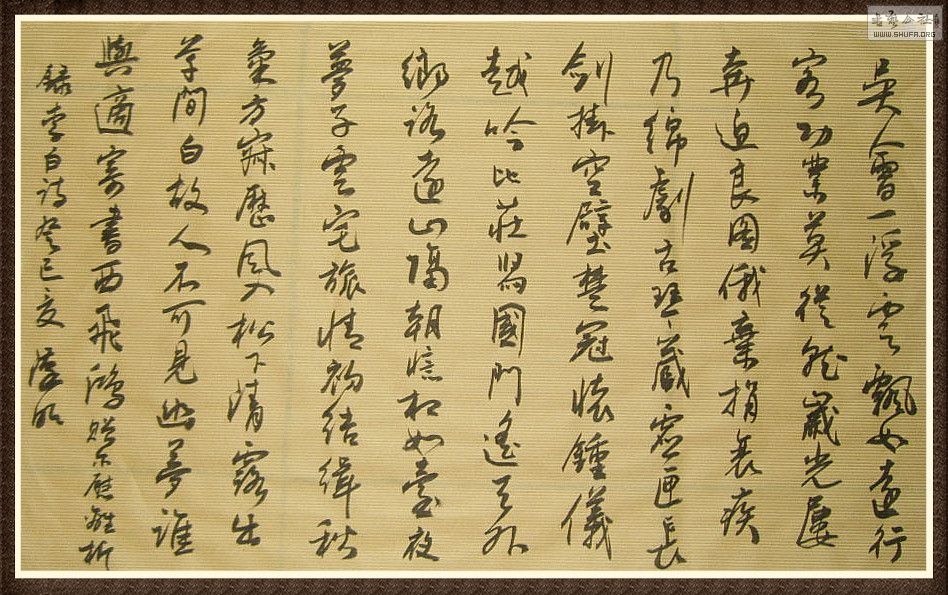 吳會一浮雲飄如遠行
客功業莫從就歲光屢
奔迫良圖俄棄捐衰疾
乃綿劇古琴藏虛匣長
劍挂空壁楚冠懷鍾儀
越吟比莊舄國門遙天外
鄉路遠山隔朝憶相如臺夜
夢子雲宅旅情初結緝秋
氣方寂歷風入松下清露出
草間白故人不可見幽夢誰
與適寄書西飛鴻贈尔慰離析
錄李白詩癸巳夏
WWW.SHUFA.ORG